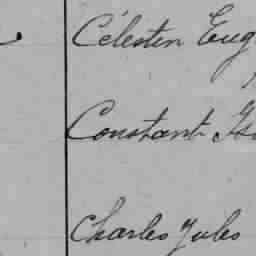 Célestin Eug
Constant Is
Charles Jules